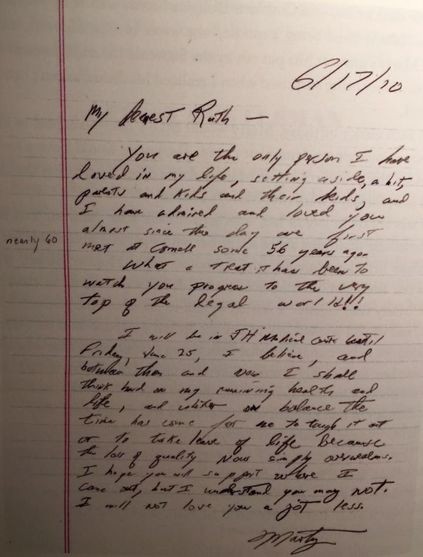 6/17/10
My dearest Ruth —
You are the only person I have
loved in my life, setting aside, a bit,
parents and kids and their kids, and
I have admired and loved you
almost since the day we first
nearly 60
met at Cornell some 56 years ago.
What a treat it has been to
watch you progress to the very
top of the legal world!!!
I will be in JH Medical Center until
Friday, June 25, I believe, and
between then and now I shall
think hard on my remaining health and
life, and whether on balance the
time has come for me to tough it out
or to take leave of life because
the loss of quality now simply overwhelms.
I hope you will support where I
come out, but I understand you may not.
I will not love you a jot less.
Marty